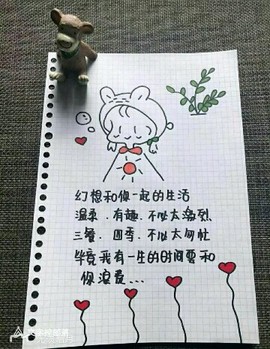 幻想和你一起的生活
温柔.有趣.不必太深刻
三餐.四季.不必太匆忙
毕竟我有一生的时间要和
你浪费...